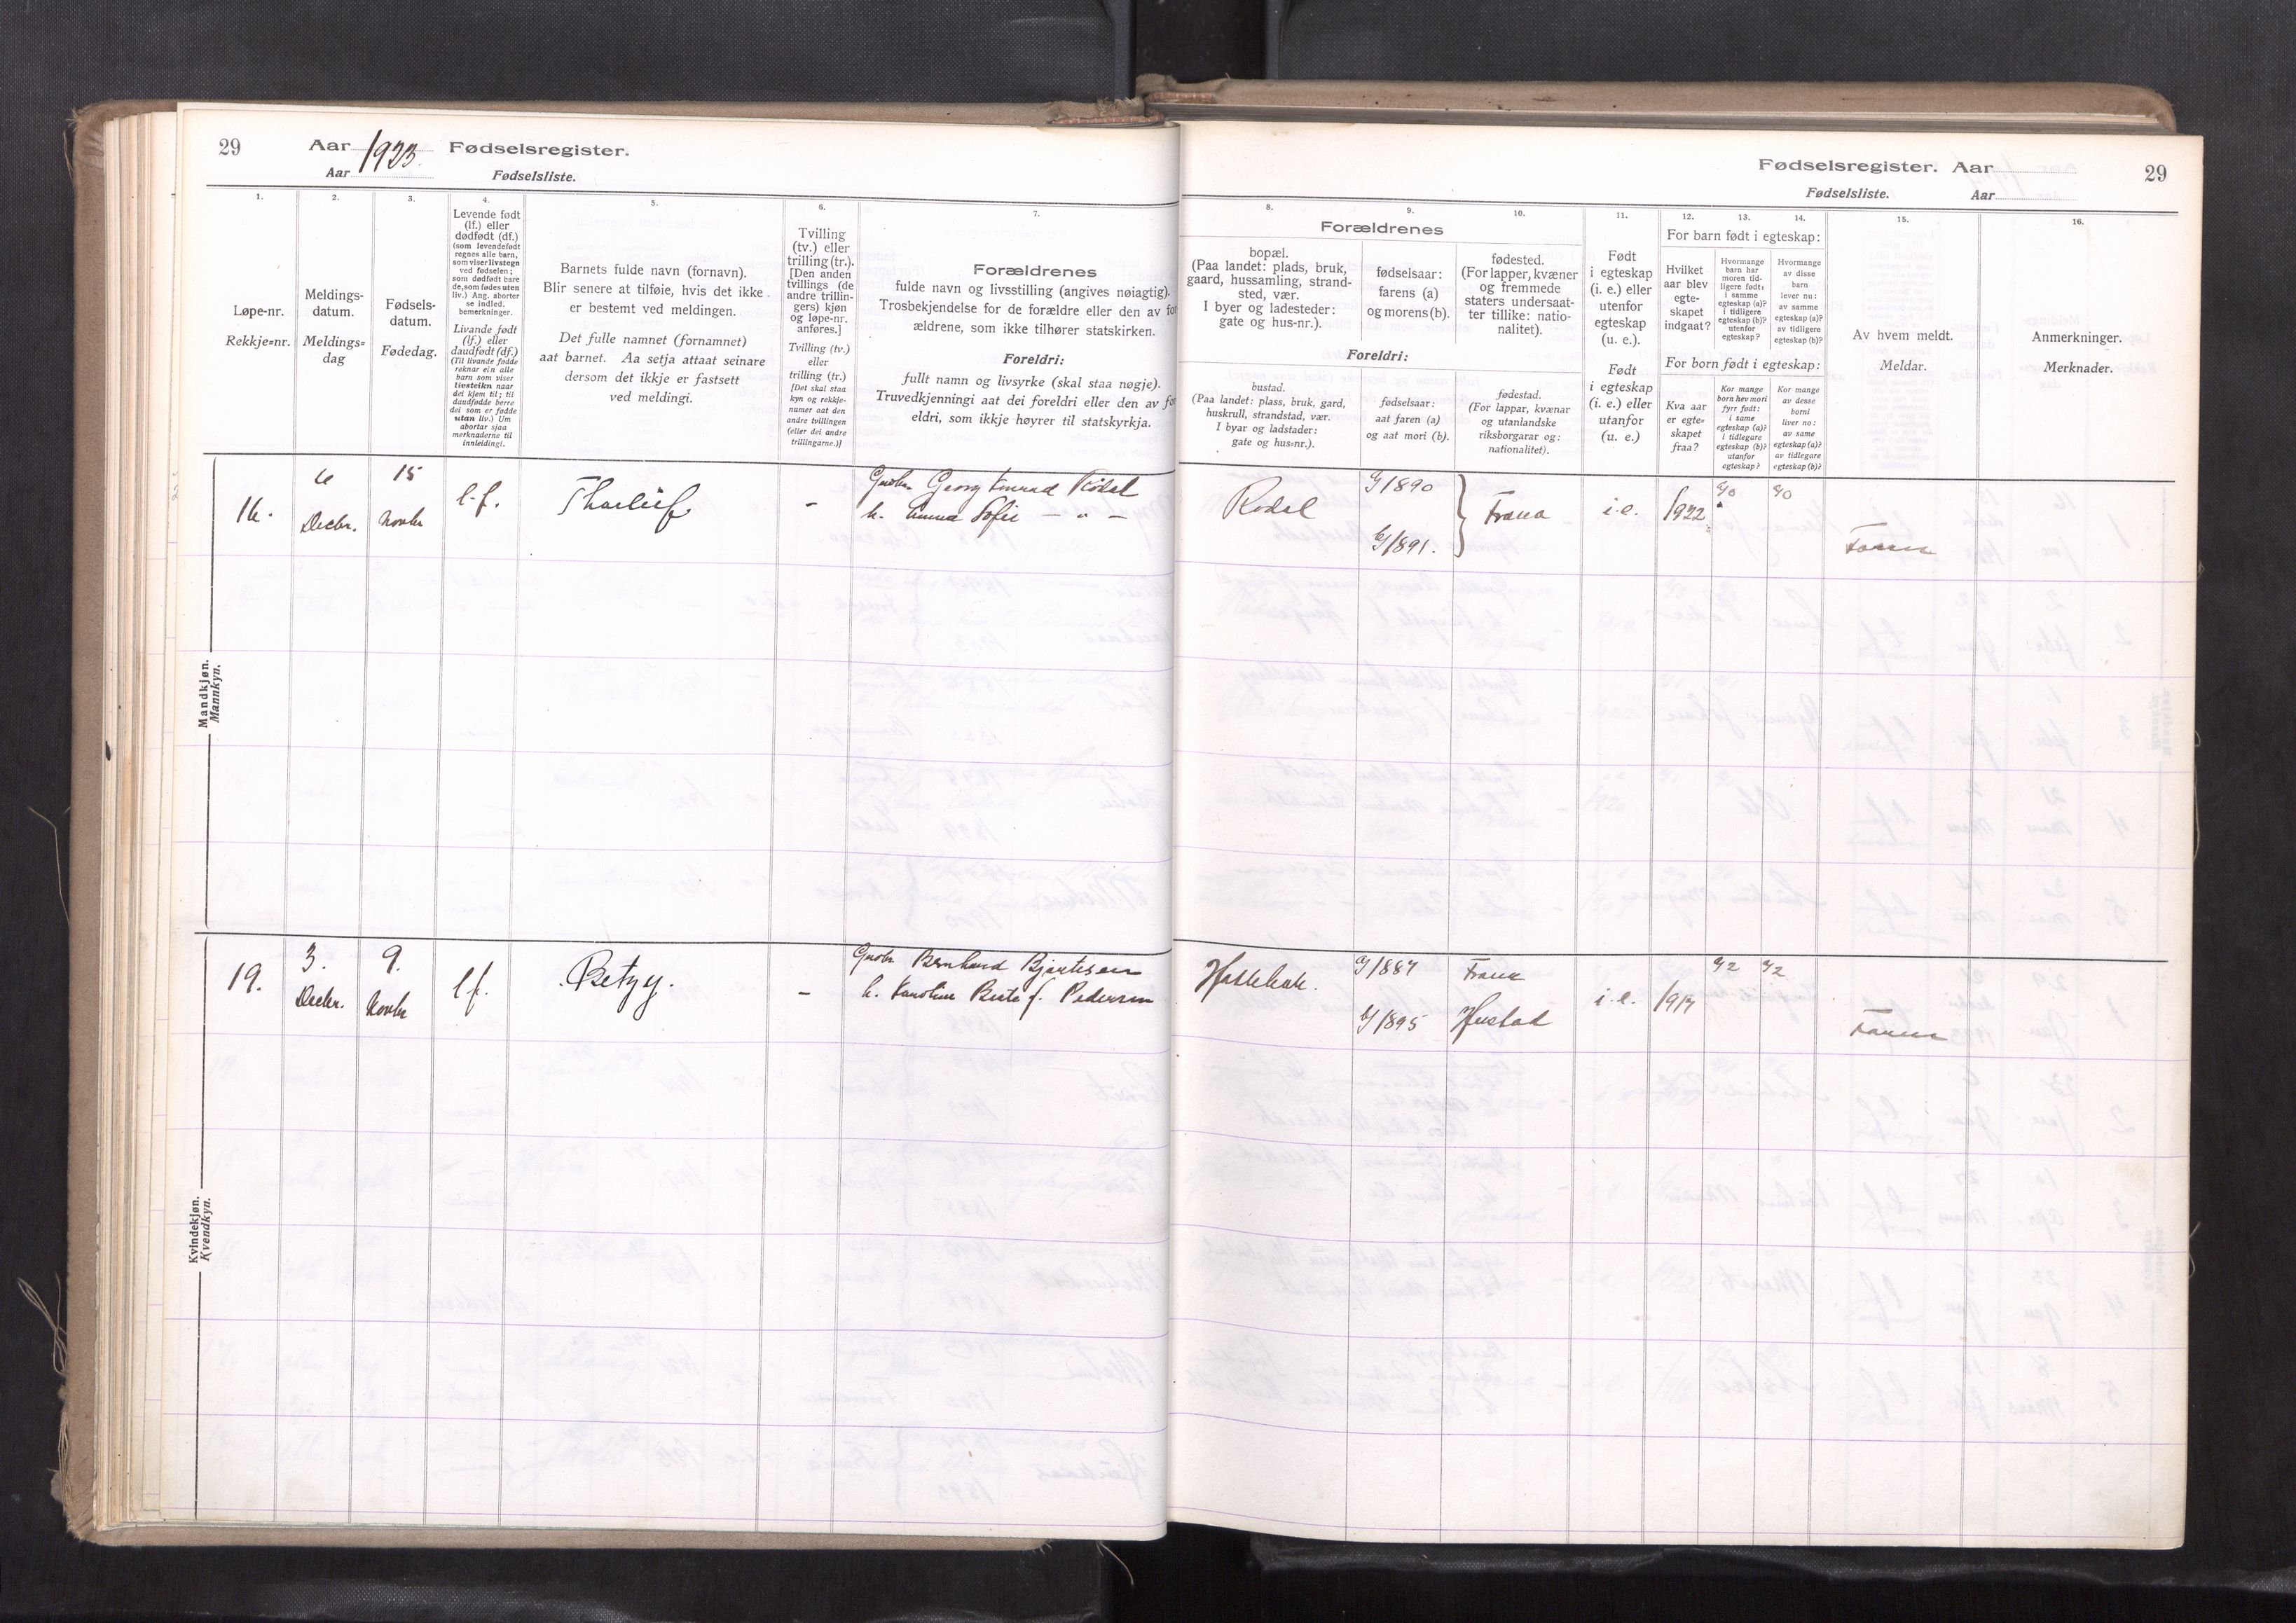 29
Aar 1923. Fødselsregister.
Aar Fødselsliste.
Fødselsregister. Aar
29
Fødselsliste. Aar
1.
Løpe-nr.
Rekkje=nr.
2.
Meldings-
datum.
Meldings=
dag
3.
Fødsels-
datum.
Fødedag.
4.
Levende født
(lf.) eller
dødfødt (df.)
(som levendefødt
regnes alle barn,
som viser livstegn
ved fødselen;
som dødfødt bare
de, som fødes uten
liv.) Ang. aborter
se indled.
bemerkninger.
Livande født
(lf.) eller
daudfødt (df.)
(Til livande fødde
reknar ein alle
barn som viser
livsteikn naar
dei kjem til; til
daudfødde berre
dei som er fødde
utan liv.) Um
abortar sjaa
merknaderne til
innleidingi.
5.
Barnets fulde navn (fornavn).
Blir senere at tilføie, hvis det ikke
er bestemt ved meldingen.
Det fulle namnet (fornamnet)
aat barnet. Aa setja attaat seinare
dersom det ikkje er fastsett
ved meldingi.
6.
Tvilling
(tv.) eller
trilling (tr.).
[Den anden
tvillings (de
andre trillin-
gers) kjøn
og løpe-nr.
anføres.]
Tvilling (tv.)
eller
trilling (tr.)
[Det skal staa
kyn og rekkje-
numer aat den
andre tvillingen
(eller dei andre
trillingarne.)]
7.
Forældrenes
fulde navn og livsstilling (angives nøiagtig).
Trosbekjendelse for de forældre eller den av for
ældrene, som ikke tilhører statskirken.
Foreldri:
fullt namn og livsyrke (skal staa nøgje).
Truvedkjenningi aat dei foreldri eller den av for
eldri, som ikkje høyrer til statskyrkja.
Forældrenes
8.
bopæl.
(Paa landet: plads, bruk,
gaard, hussamling, strand-
sted, vær.
I byer og ladesteder:
gate og hus-nr.).
9.
fødselsaar:
farens (a)
og morens (b).
10.
fødested.
(For lapper, kvæner
og fremmede
staters undersaat-
ter tillike: natio-
nalitet).
Foreldri:
bustad.
(Paa landet: plass, bruk, gard,
huskrull, strandstad, vær.
I byar og ladstader:
gate og hus=nr.).
fødselsaar:
aat faren (a)
og aat mori (b).
fødestad.
(For lappar, kvænar
og utanlandske
riksborgarar og:
nationalitet).
11.
Født
i egteskap
(i. e.) eller
utenfor
egteskap
(u. e.).
Født
i egteskap
(i. e.) eller
utanfor
(u. e.)
12. 13. 14.
For barn født i egteskap:
Hvilket
aar blev
egte-
skapet
indgaat?
Hvormange
barn har
moren tid-
ligere født:
i samme
egteskap (a)?
i tidligere
egteskap (b)?
utenfor
egteskap?
Hvormange
av disse
barn
lever nu:
av samme
egteskap (a)?
av tidligere
egteskap (b)?
For born født i egteskap:
Kva aar
er egte=
skapet
fraa?
Kor mange
born hev mori
fyrr født:
i same
egteskap (a)?
i tidlegare
egteskap (b)?
utanfor
egteskap?
Kor mange
av desse
borni
liver no:
av same
egteskap (a)?
av tidlegare
egteskap (b)?
15.
Av hvem meldt.
Meldar.
16.
Anmerkninger.
Merknader.
Mandkjøn.
Mannkyn.
16. 6 Decbr. 15 Novbr l.f. Tharleif - Georg Konrad Rödal
h. Anna Sofie — „ —
Rødal a/1890 b/1891. Fræna i.e. 1922 a/0 a/0 Faren
Kvindekjøn.
Kvendkyn.
19. 3. Decbr. 9. Novbr l.f. Betzy. - Bernhard Bjartesen
h. Karoline Berta f. Pedersen
a/1887 Fræna
b/1895 Hustad i.e. 1917 a/2 a/2 Faren